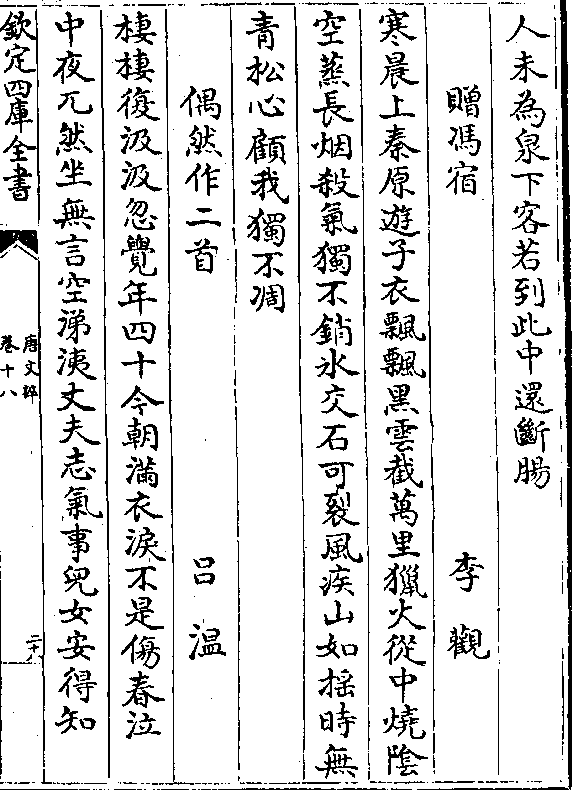 人未為泉下客若到此中還斷腸
贈馮宿 李觀
寒晨上秦原遊子衣飄飄黑雲截萬里獵火從中燒陰
空蒸長烟殺氣獨不銷氷交石可裂風疾山如揺時無
青松心顧我獨不凋
偶然作二首 吕溫
棲棲復汲汲忽覺年四十今朝滿衣淚不是傷春泣
中夜兀然坐無言空涕洟丈夫志氣事兒女安得知
欽定四庫全書
唐文粹
卷十八
二十八